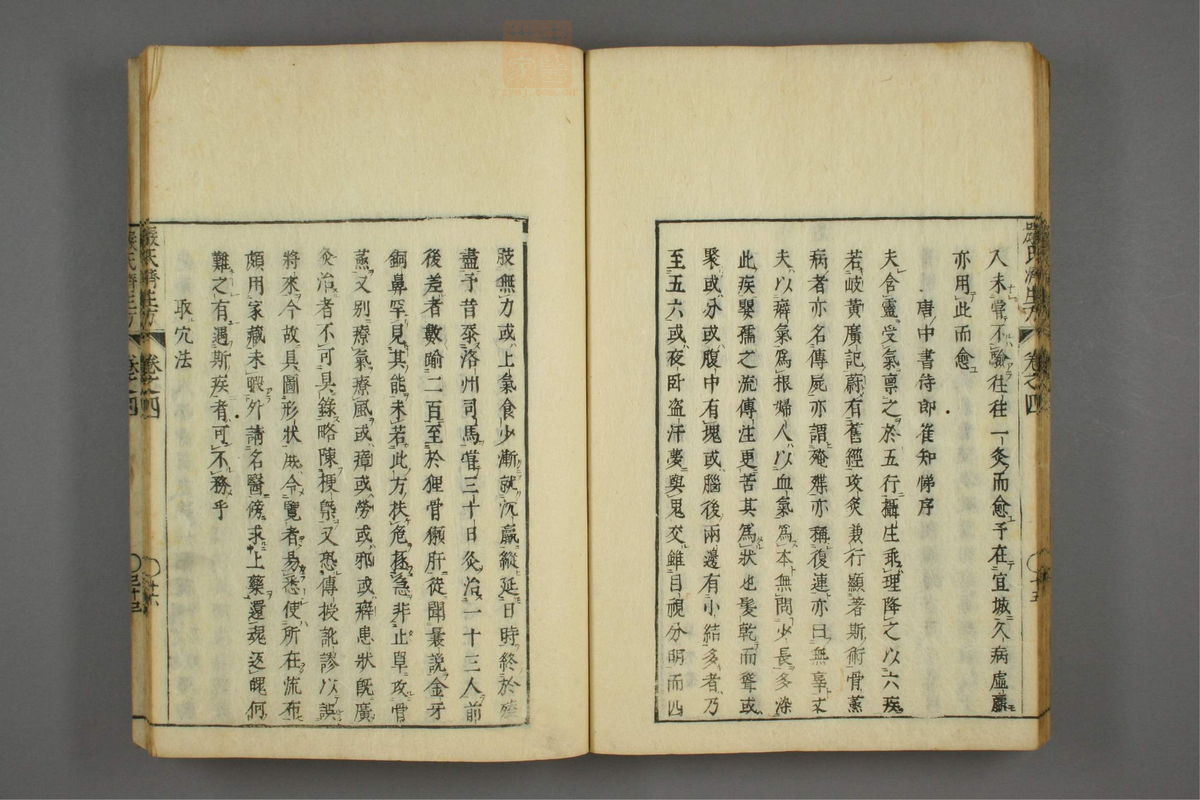 人未嘗不驗往往一灸而愈予在宜城久病虛羸
亦用此而愈
唐中書待郎崔知悌序
夫含靈受氣稟之於五行攝生乖理降之以六疾
若岐黃廣記蔚有舊經攻灸兼行顯著斯術骨蒸
病者亦名傳屍亦謂殗殜亦稱復連亦曰無辜丈
夫以癖氣爲根婦人以血氣爲本無問少長多染
此疾嬰孺之流傳注更苦其爲狀也髮乾而聳或
聚或分或腹中有塊或腦後兩邊有小結多者乃
至五六或夜卧盜汗夢與鬼交雖目視分明而四
肢無力或上氣食少漸就沉羸縱延日時終於殪
盡予昔忝洛州司馬嘗三十日灸治一十三人前
後差者數踰二百至於狸骨獺肝徒聞曩說金牙
銅鼻罕見其能未若此方扶危拯急非止單攻骨
蒸又别療氣療風或瘴或勞或邪或癖患狀既廣
灸治者不可具錄略陳梗槩又恐傳授訛謬以誤
將來今故具圖形狀庶令覽者易悉使所在流布
頗用家藏未暇外請名醫傍求上藥還魂返魄何
難之有遇斯疾者可不務乎
取穴法
嚴氏濟生方
卷之四